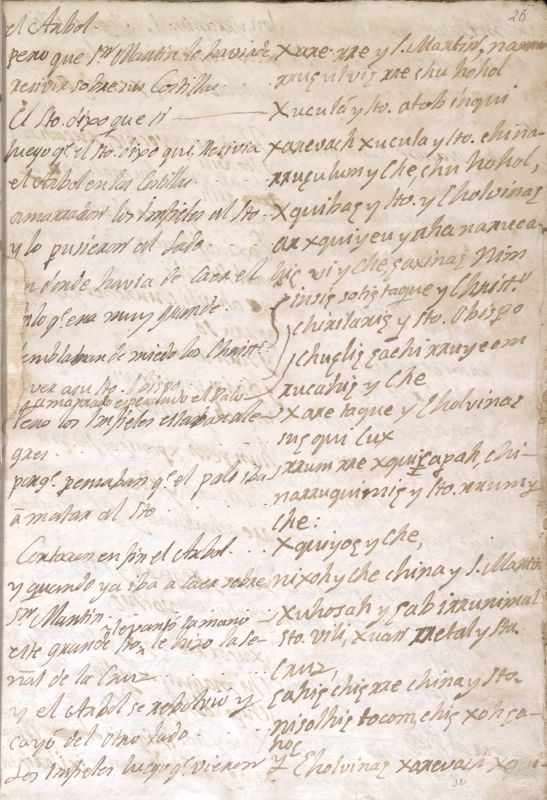 26
el Arbol.
pero que Sn. Martin lo havia de
recivir sobre sus Costillas
El Sto. dixo que si
luego q. el Sto. dixo qui. recivia
el Arbol en las Costillas
amarraron los Infieles al Sto.
y lo pusieron al lado.
donde havia de Caer el
palo q. era muy grande.
temblaban de miedo los Christ.
ver a su Sto. Obispo
y amarrado esperando el Palo
Pero los Infieles estaban ale-
gres.
porq. pensaban q. el palo iba
â matar al Sto.
Cortaron en fin el Arbol.
y quando ya iba a Caer sobre
Sn. Martin
este grande Sto. levantó la mano
le hizo la Se-
ñal de la Cruz
y el Arbol se rebolvió y
cayó del otro lado.
Los Infieles luego q. vieron
xare rre y S. Martin,
chu hohol
xucula y Sto. atob inqui
xarevach xucula y Sto. china-
rruçulum y Che, chu hohol,
xquibaç y Sto. y Eholvinaç
ar xquiyeu y nha naruca-
vi y Che, çaxinaç Nim
taque y Christ.
y Sto. Obispo
rrucahiç y Che
xare taque y Eholvinaç
suç qui Cux
rrum rre xquiçapah, chi-
y Sto. rrum y
Che:
xquiyoç y Che,
nixoh y che china y S. Martin
xuhosah y çab irrunimal
Sto. vili, xuan rretal y Sta.
Cruz,
çahiç chiç rre china y Sto.
tocom, chiç xoh ça-
hoc
Eholvinaç xarevach